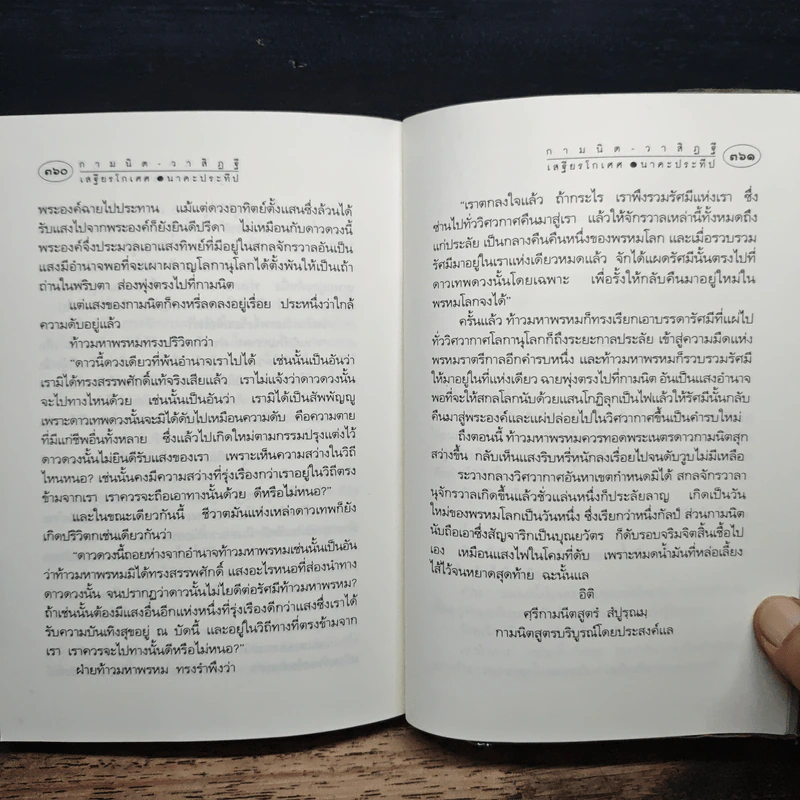 ๓๖๐
กามนิต-วาสิฏฐี
เสฐียรโกเศศ ● นาคะประทีป
พระองค์ฉายไปประทาน แม้แต่ดวงอาทิตย์ตั้งแสนซึ่งล้วนได้
รับแสงไปจากพระองค์ก็ยังยินดีปรีดา ไม่เหมือนกับดาวดวงนี้
พระองค์จึ่งประมวลเอาแสงทิพย์ที่มีอยู่ในสกลจักรวาลอันเป็น
แสงมีอำนาจพอที่จะเผาผลาญโลกานุโลกได้ตั้งพันให้เป็นเถ้า
ถ่านในพริบตา ส่องพุ่งตรงไปที่กามนิต
แต่แสงของกามนิตก็คงหรี่ลดลงอยู่เรื่อย ประหนึ่งว่าใกล้
ความดับอยู่แล้ว
ท้าวมหาพรหมทรงปริวิตกว่า
"ดาวนี้ดวงเดียวที่พ้นอำนาจเราไปได้ เช่นนั้นเป็นอันว่า
เรามิได้ทรงสรรพศักดิ์แท้จริงเสียแล้ว เราไม่แจ้งว่าดาวดวงนั้น
จะไปทางไหนด้วย เช่นนั้นเป็นอันว่า เรามิได้เป็นสัพพัญญู
เพราะดาวเทพดวงนั้นจะมิได้ดับไปเหมือนความดับ คือความตาย
ที่มีแก่ชีพอื่นทั้งหลาย ซึ่งแล้วไปเกิดใหม่ตามกรรมปรุงแต่งไว้
ดาวดวงนั้นไม่ยินดีรับแสงของเรา เพราะเห็นความสว่างในวิถี
ไหนหนอ? เช่นนั้นคงมีความสว่างที่รุ่งเรืองกว่าเราอยู่ในวิถีตรง
ข้ามจากเรา เราควรจะถือเอาทางนั้นด้วย ดีหรือไม่หนอ?"
และในขณะเดียวกันนี้ ชีวาตมันแห่งเหล่าดาวเทพก็ยัง
เกิดปริวิตกเช่นเดียวกันว่า
"ดาวดวงนี้ถอยห่างจากอำนาจท้าวมหาพรหมเช่นนั้นเป็นอัน
ว่าท้าวมหาพรหมมิได้ทรงสรรพศักดิ์ แสงอะไรหนอที่ส่องนำทาง
ดาวดวงนั้น จนปรากฏว่าดาวนั้นไม่ไยดีต่อรัศมีท้าวมหาพรหม?
ถ้าเช่นนั้นต้องมีแสงอื่นอีกแห่งหนึ่งที่รุ่งเรืองดีกว่าแสงซึ่งเราได้
รับความบันเทิงสุขอยู่ ณ บัดนี้ และอยู่ในวิถีทางที่ตรงข้ามจาก
เรา เราควรจะไปทางนั้นดีหรือไม่หนอ?"
ฝ่ายท้าวมหาพรหม ทรงรำพึงว่า
กามนิต-วาสิฏฐี
เสฐียรโกเศศ ● นาคะประทีป
๓๖๑
"เราตกลงใจแล้ว ถ้ากระไร เราพึงรวมรัศมีแห่งเรา ซึ่ง
ซ่านไปทั่ววิศวากาศคืนมาสู่เรา แล้วให้จักรวาลเหล่านี้ทั้งหมดถึง
แก่ประลัย เป็นกลางคืนคืนหนึ่งของพรหมโลก และเมื่อรวบรวม
รัศมีมาอยู่ในเราแห่งเดียวหมดแล้ว จักได้แผดรัศมีนั้นตรงไปที่
ดาวเทพดวงนั้นโดยเฉพาะ เพื่อรั้งให้กลับคืนมาอยู่ใหม่ใน
พรหมโลกจงได้"
ครั้นแล้ว ท้าวมหาพรหมก็ทรงเรียกเอาบรรดารัศมีที่แผ่ไป
ทั่ววิศวากาศโลกานุโลกก็ถึงระยะกาลประลัย เข้าสู่ความมืดแห่ง
พรหมราตรีกาลอีกคำรบหนึ่ง และท้าวมหาพรหมก็รวบรวมรัศมี
ให้มาอยู่ในที่แห่งเดียว ฉายพุ่งตรงไปที่กามนิต อันเป็นแสงอำนาจ
พอที่จะให้สกลโลกนับด้วยแสนโกฏิลุกเป็นไฟแล้วให้รัศมีนั้นกลับ
คืนมาสู่พระองค์และแผ่ปล่อยไปในวิศวากาศขึ้นเป็นคำรบใหม่
ถึงตอนนี้ ท้าวมหาพรหมควรทอดพระเนตรดาวกามนิตสุก
สว่างขึ้น กลับเห็นแสงริบหรี่หนักลงเรื่อยไปจนดับวูบไม่มีเหลือ
ระวางกลางวิศวากาศอันหาเขตกำหนดมิได้ สกลจักรวาลา
นุจักรวาลเกิดขึ้นแล้วชั่วแล่นหนึ่งก็ประลัยลาญ เกิดเป็นวัน
ใหม่ของพรหมโลกเป็นวันหนึ่ง ซึ่งเรียกว่าหนึ่งกัลป์ ส่วนกามนิต
นับถือเอาซึ่งสัญจาริกเป็นบุณยวัตร ก็ดับรอบจริมจิตสิ้นเชื้อไป
เอง เหมือนแสงไฟในโคมที่ดับ เพราะหมดน้ำมันที่หล่อเลี้ยง
ไส้ไว้จนหยาดสุดท้าย ฉะนั้นแล
อิติ
ศรีกามนีตสูตรํ สํปูรฺณมฺ
กามนิตสูตรบริบูรณ์โดยประสงค์แล